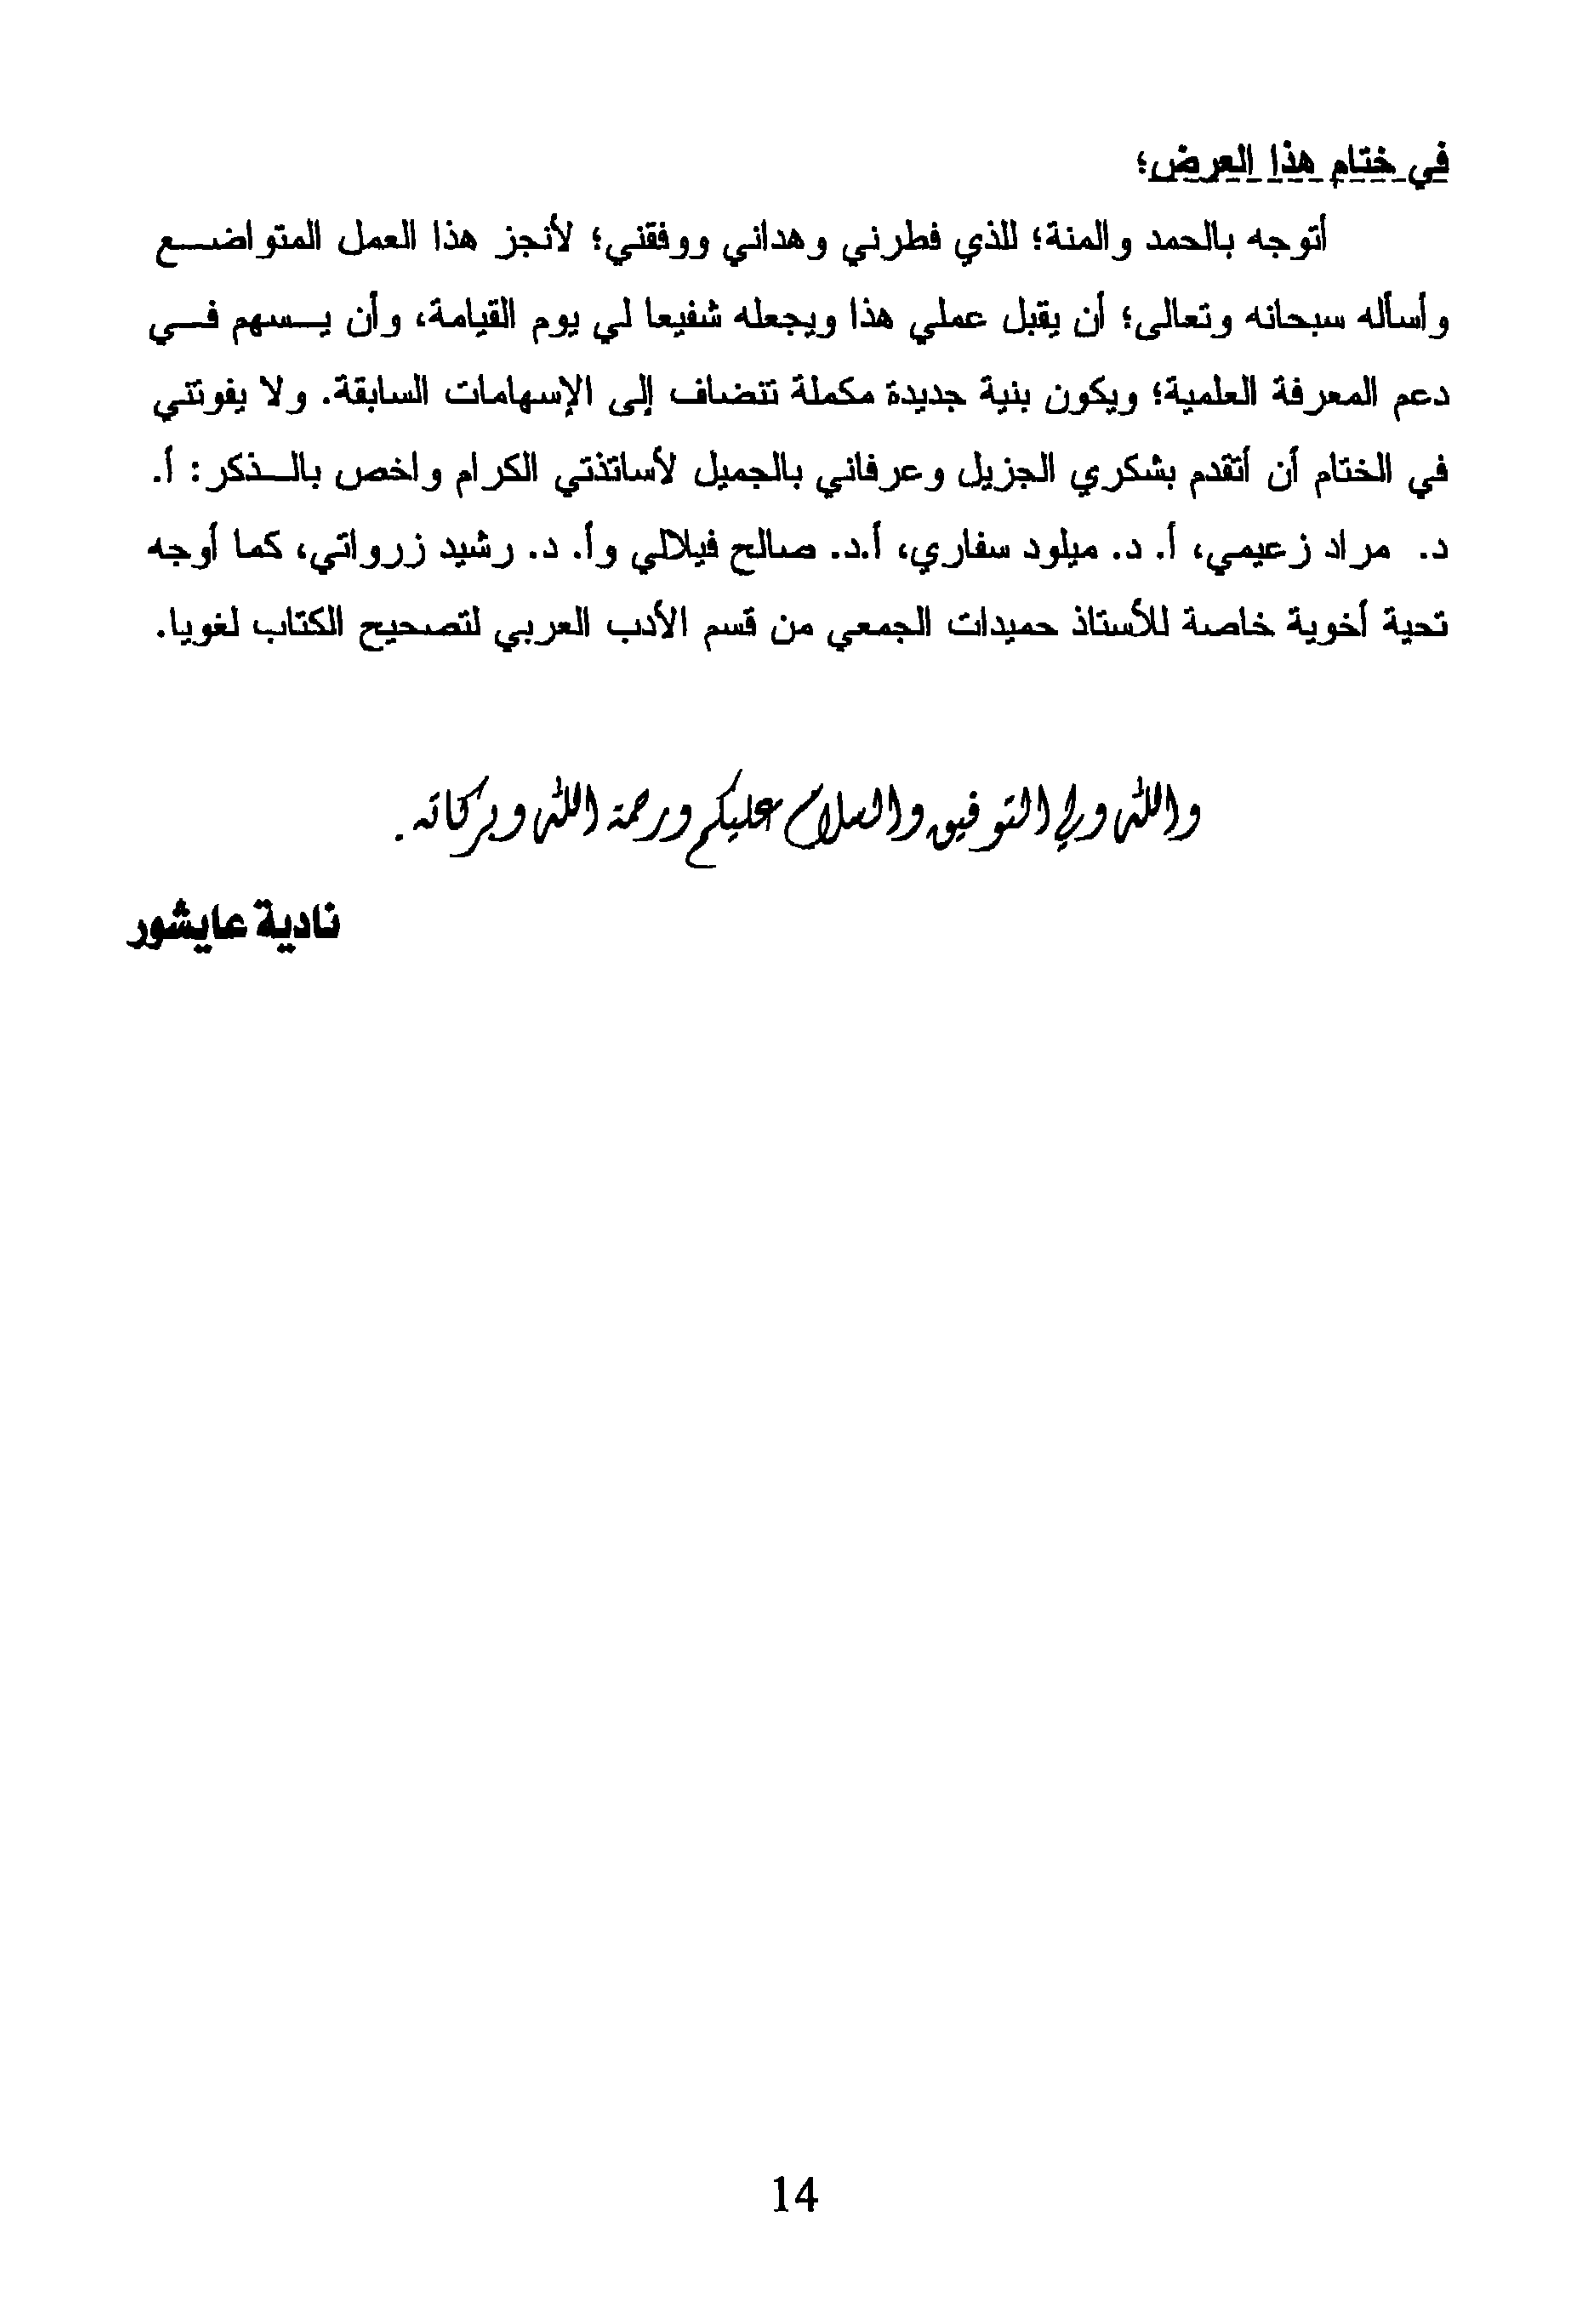 في ختام هذا العرض؛
أتوجه بالحمد والمنة؛ للذي فطرني وهداني ووفقني؛ لأنجز هذا العمل المتواضع
وأسأله سبحانه وتعالى؛ أن يقبل عملي هذا ويجعله شفيعا لي يوم القيامة، وأن يسهم في
دعم المعرفة العلمية؛ ويكون بنية جديدة مكملة تتضاف إلى الإسهامات السابقة. ولا يفوتني
في الختام أن أتقدم بشكري الجزيل وعرفاني بالجميل لأساتذتي الكرام واخص بالذكر: أ.
د. مراد زعيمي، أ. د. ميلود سفاري، أ.د. صالح فيلالي وأ. د. رشيد زرواتي، كما أوجه
تحية أخوية خاصة للأستاذ حميدات الجمعي من قسم الأدب العربي لتصحيح الكتاب لغويا.
والله ولي التوفيق والسلام عليكم ورحمة الله وبركاته.
نادية عايشور
14